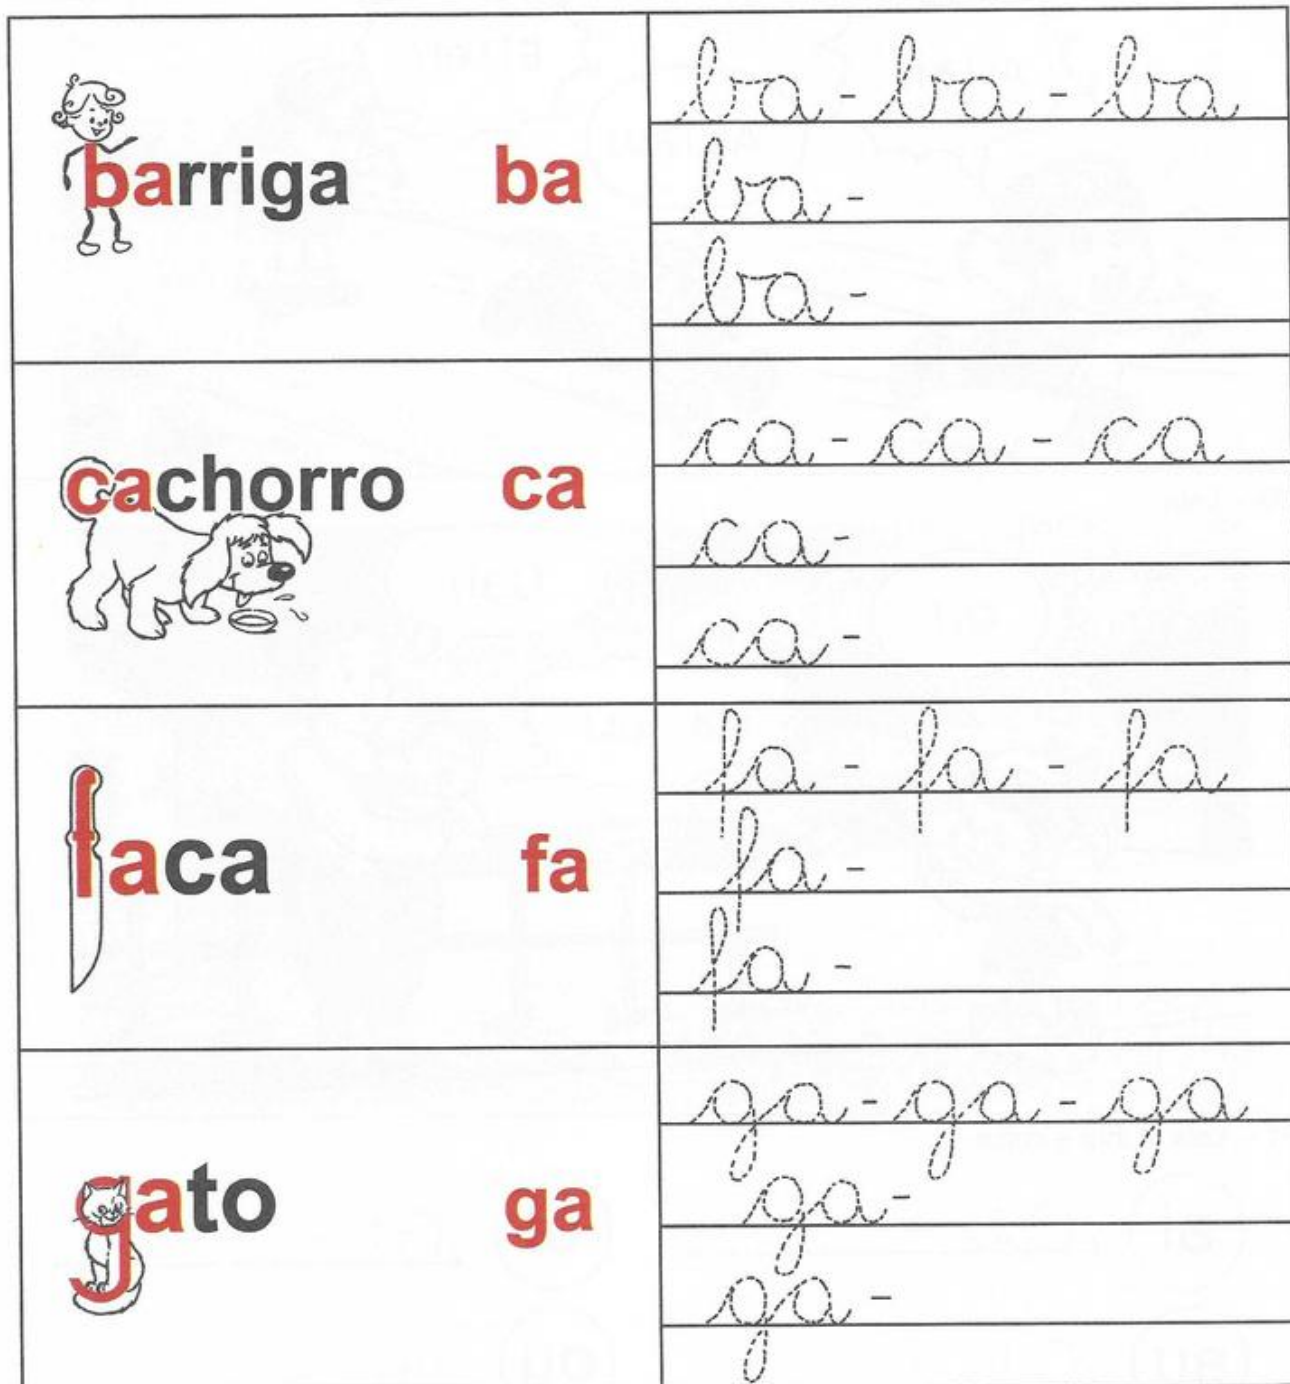 barriga ba
ba - ba - ba
ba -
ba -
cachorro ca
ca - ca - ca
ca -
ca -
faca fa
fa - fa - fa
fa -
fa -
gato ga
ga - ga - ga
ga -
ga -